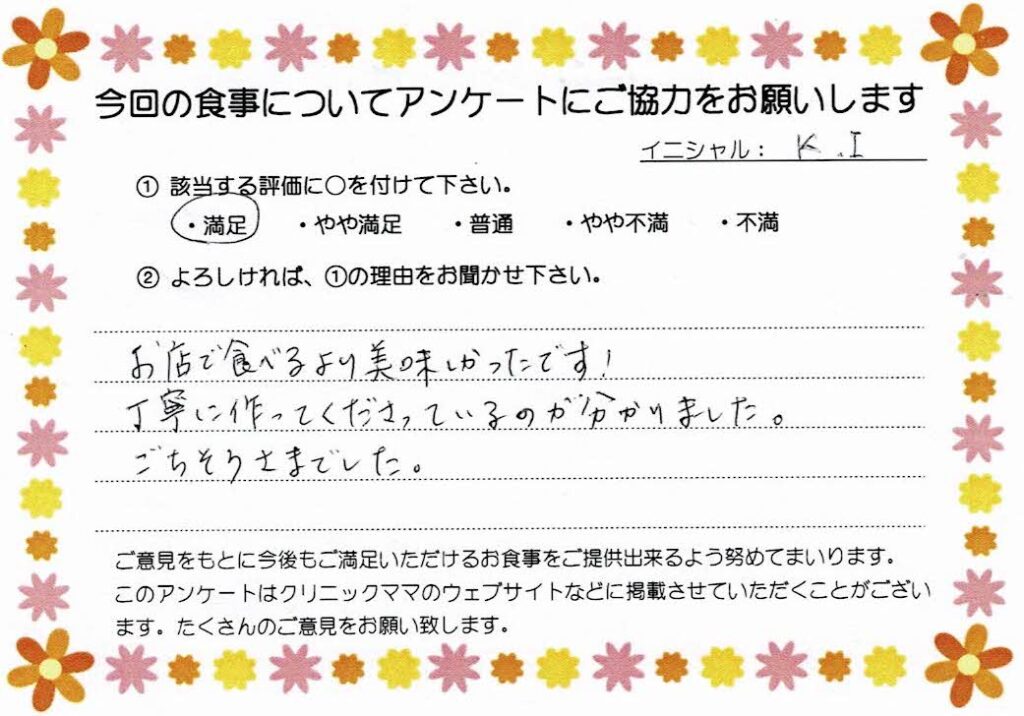 今回の食事についてアンケートにご協力をお願いします
イニシャル： K.I
① 該当する評価に〇を付けて下さい。
・満足 ・やや満足 ・普通 ・やや不満 ・不満
② よろしければ、①の理由をお聞かせ下さい。
お店で食べるより美味しかったです！
丁寧に作ってくださっているのが分かりました。
ごちそうさまでした。
ご意見をもとに今後もご満足いただけるお食事をご提供出来るよう努めてまいります。
このアンケートはクリニックママのウェブサイトなどに掲載させていただくことがござい
ます。たくさんのご意見をお願い致します。